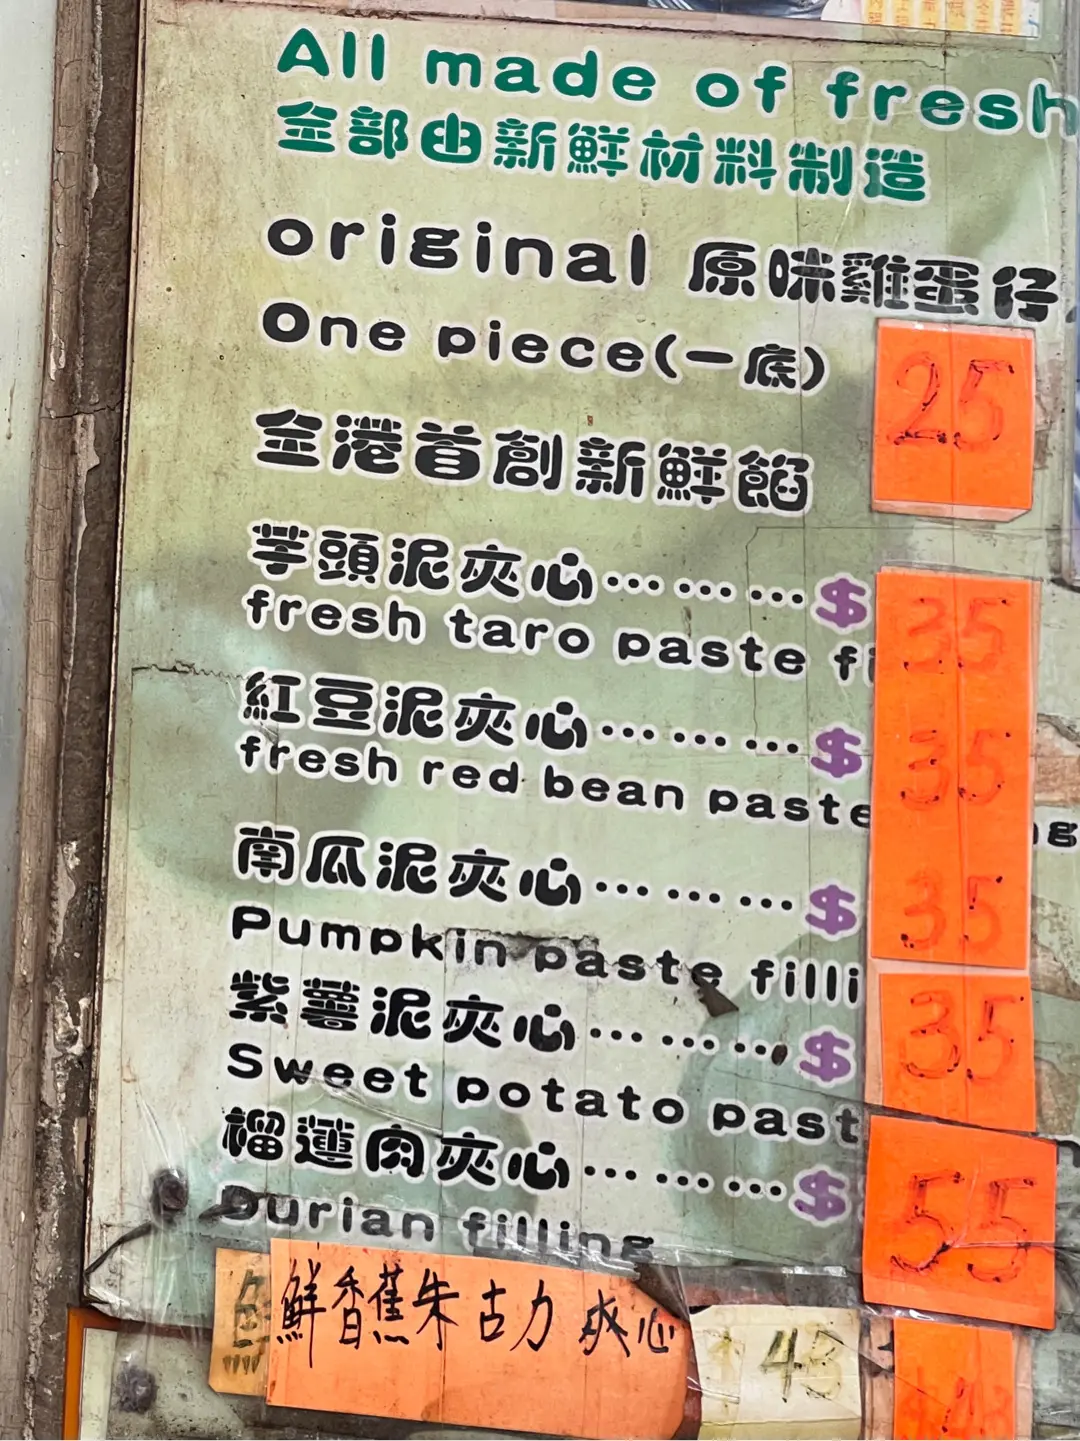 All made of fresh
全部由新鮮材料制造
original 原味雞蛋仔
One piece(一底)
25
全港首創新鮮餡
芋頭泥夾心………… $ 35
fresh taro paste fi
紅豆泥夾心………… $ 35
fresh red bean paste g
南瓜泥夾心………… $ 35
Pumpkin paste filli
紫薯泥夾心………… $ 35
Sweet potato past
榴蓮肉夾心………… $ 55
Durian filling
鮮香蕉朱古力夾心 48